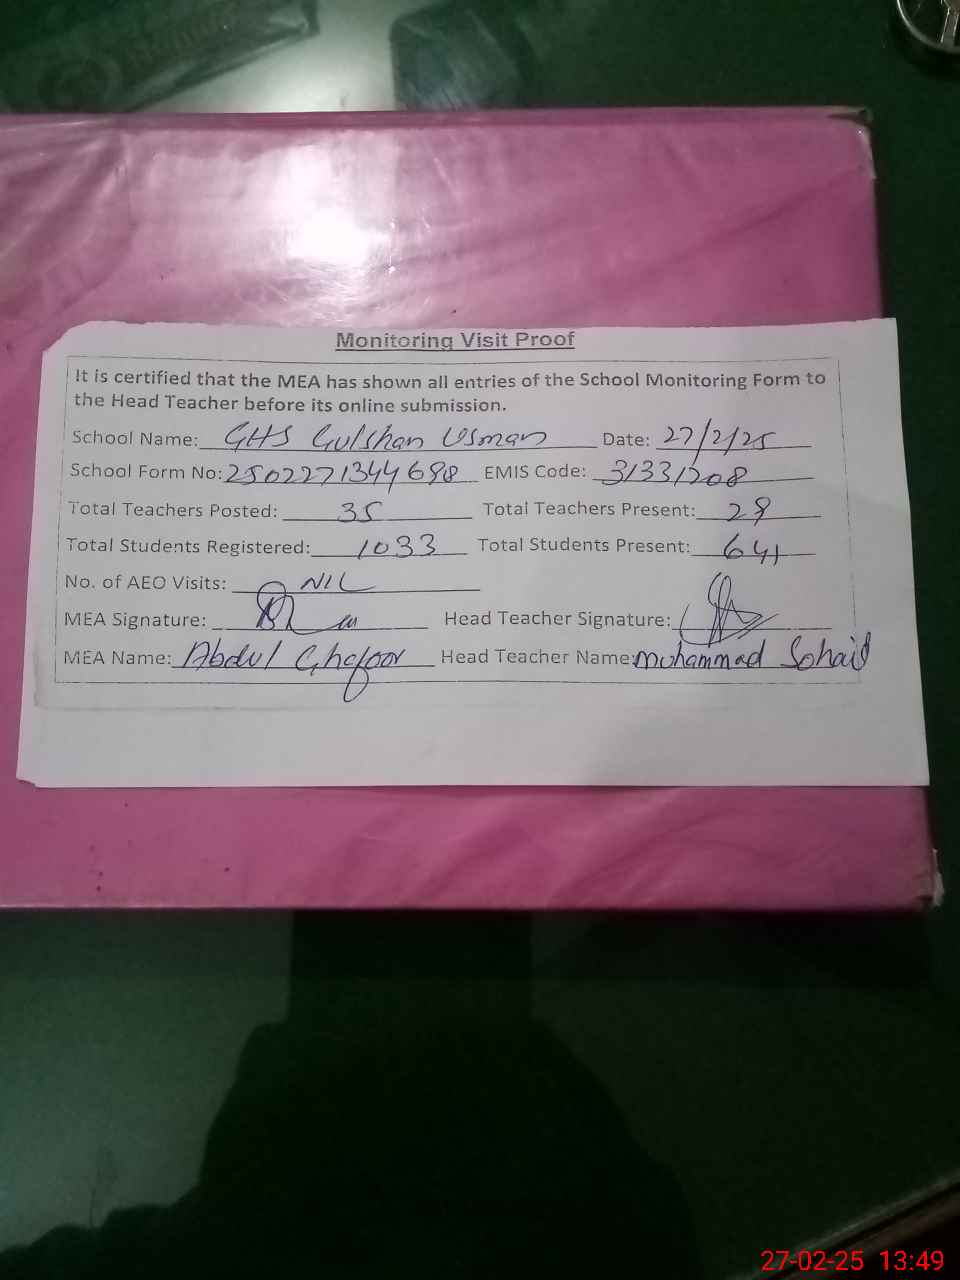 Monitoring Visit Proof
It is certified that the MEA has shown all entries of the School Monitoring Form to
the Head Teacher before its online submission.
School Name: GHS Gulshan Usman Date: 27/2/25
School Form No: 2502271344698 EMIS Code: 31331208
Total Teachers Posted: 35 Total Teachers Present: 28
Total Students Registered: 1033 Total Students Present: 641
No. of AEO Visits: NIL
MEA Signature: Head Teacher Signature:
MEA Name: Abdul Ghafoor Head Teacher Name: Muhammad Sohail
27-02-25 13:49